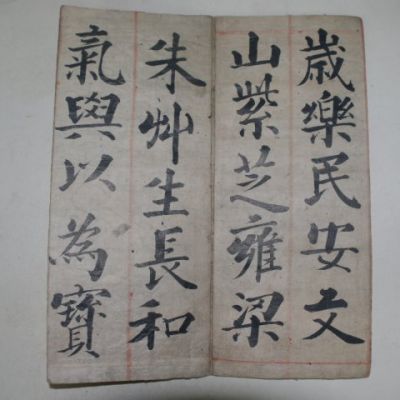 歳樂民安文
山紫芝雍梁
朱艸生長和
氣與以為寶